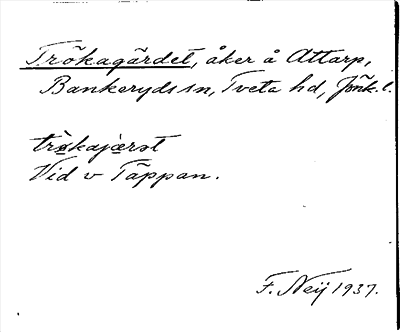 Trökagärdet, åker å Attarp,
Bankeryds sn, Tveta hd, Jönk. l.
trøkajærət
Vid v Täppan.
F. Neij 1937.